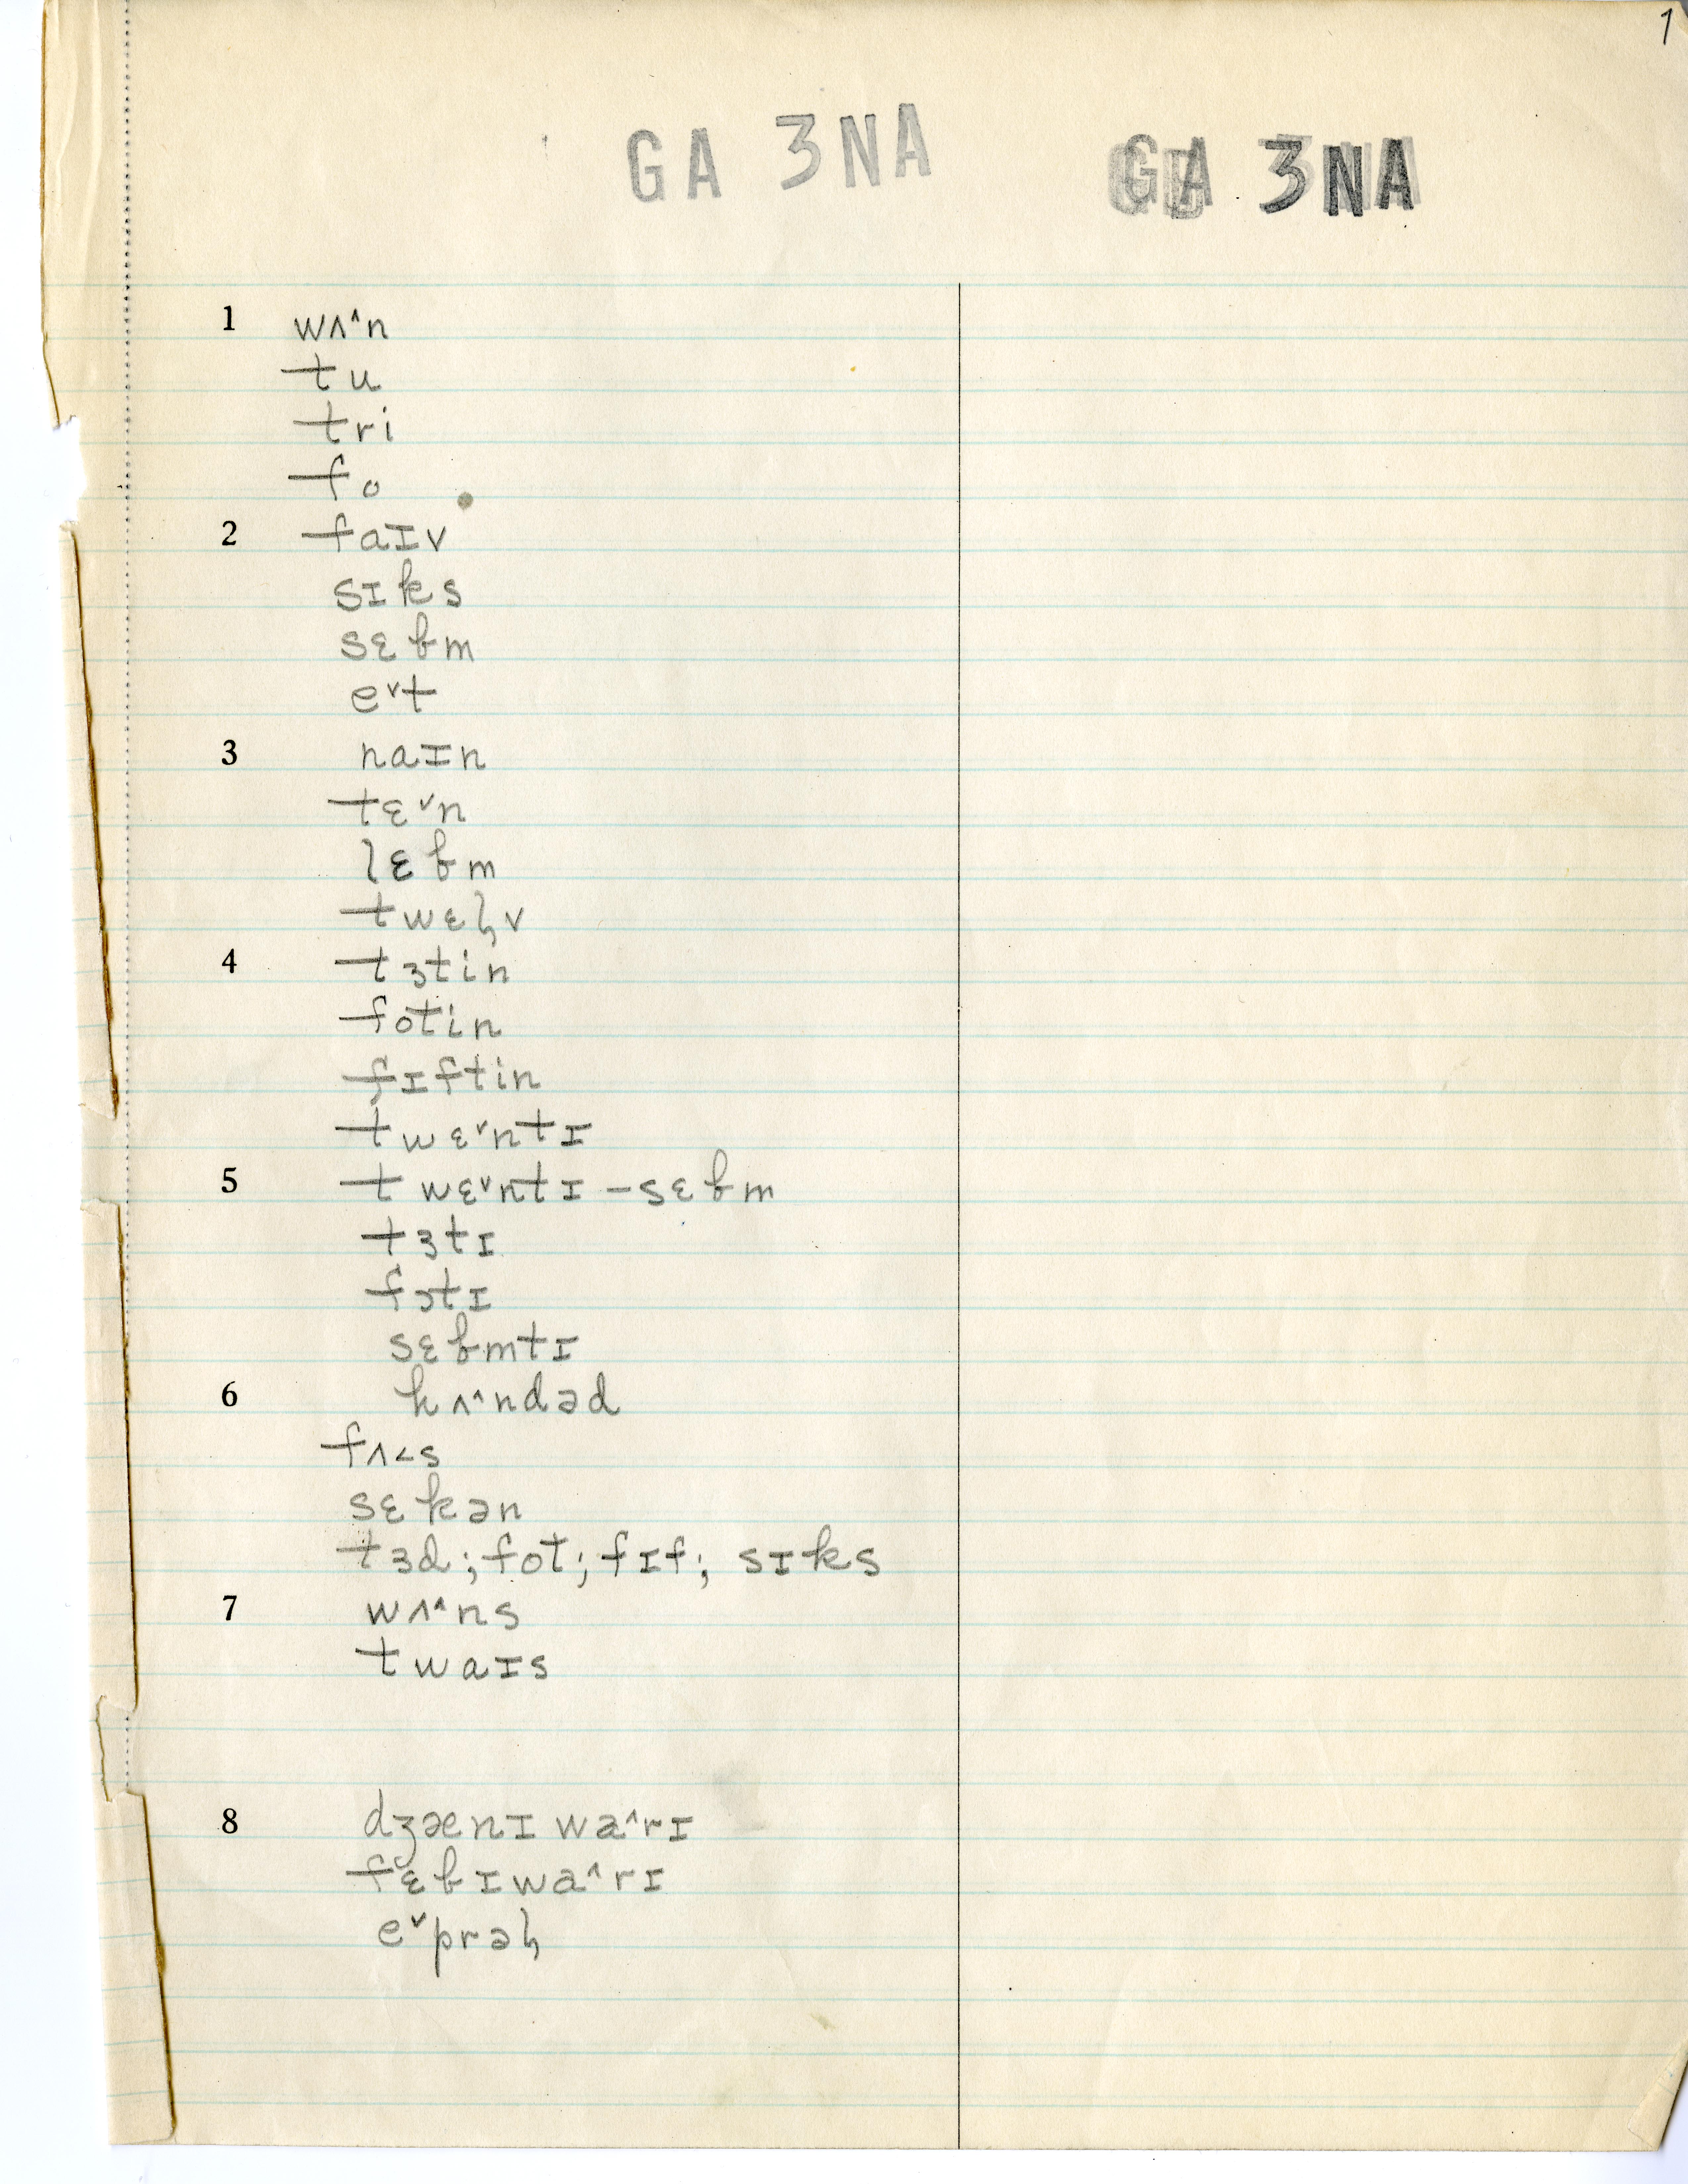 1
GA 3NA GA 3NA
1 wʌ˄n
tu
tri
fo
2 faɪv
sɪks
sɛbm
e˅t
3 naɪn
tɛ˅n
lɛbm
twɛl̡v
4 tɜtin
fotin
fɪftin
twɛ˅ntɪ
5 twɛ˅ntɪ-sɛbm
tɜtɪ
fɔtɪ
sɛbmtɪ
6 hʌ˄ndəd
fʌ˂s
sɛkən
tɜd; fot; fɪf; sɪks
7 wʌ˄ns
twaɪs
8 dʒænɪwa˄rɪ
fɛbɪwa˄rɪ
e˅prəl̡